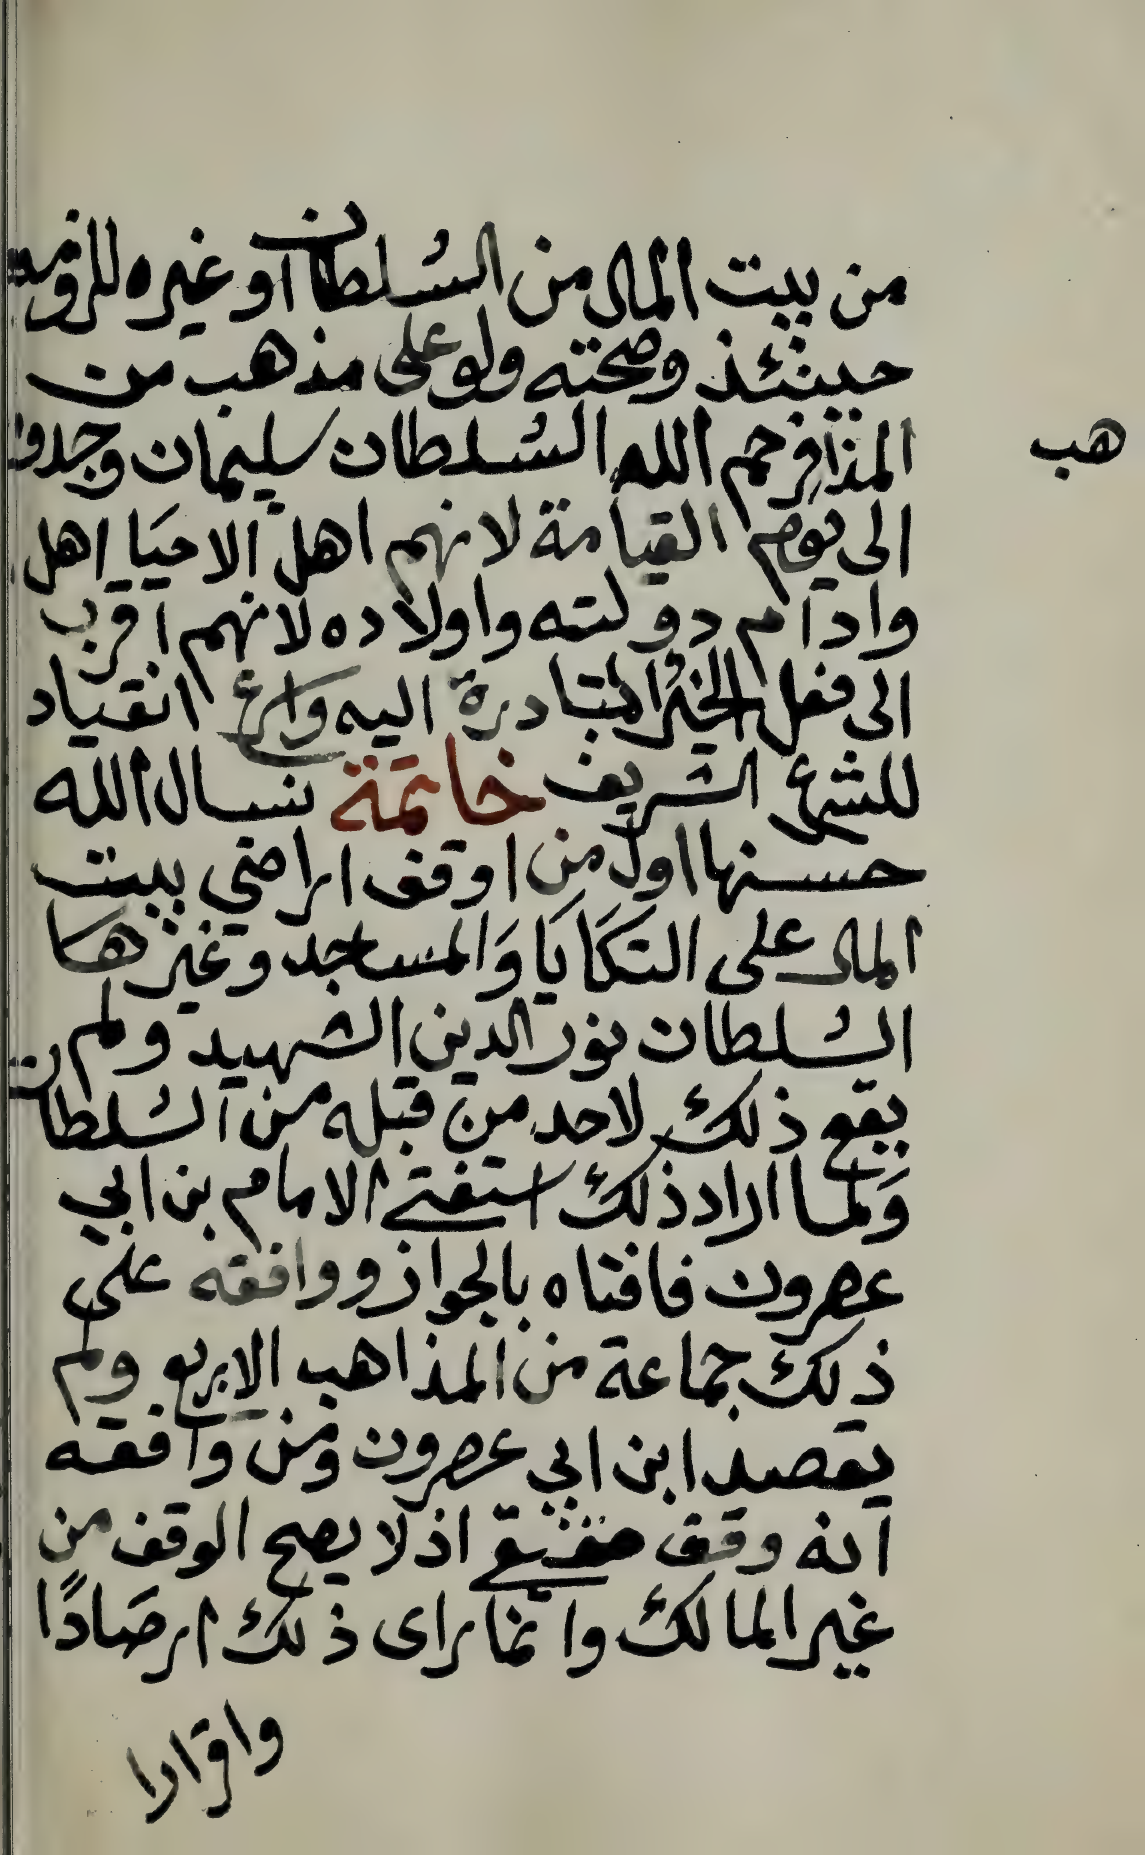 من بيت المال من السلطان او غيره للزومه
حينئذ وصحته ولو على مذهب من
المذا فرحم الله السلطان سليمان وجدوده
هب
الى يوم القيامة لانهم اهل الاحيا اهل
وادام دولته واولاده لانهم اقرب
الى فعل الخير المبادرة اليه انقياد
للشرع الشريف خاتمة نسال الله
حسنها اول من اوقف اراضي بيت
المال على التكايا والمساجد وغيرها
السلطان نور الدين الشهيد ولم
يقع ذلك لاحد من قبله من السلطان
ولما اراد ذلك استفتى الامام بن ابي
عصرون فافتاه بالجواز ووافقه على
ذلك جماعة من المذاهب الاربع ولم
يقصد ابن ابي عصرون ومن وافقه
انه وقف حقيقي اذ لا يصح الوقف من
غير المالك وانما راى ذلك ارصادًا
وافرادا